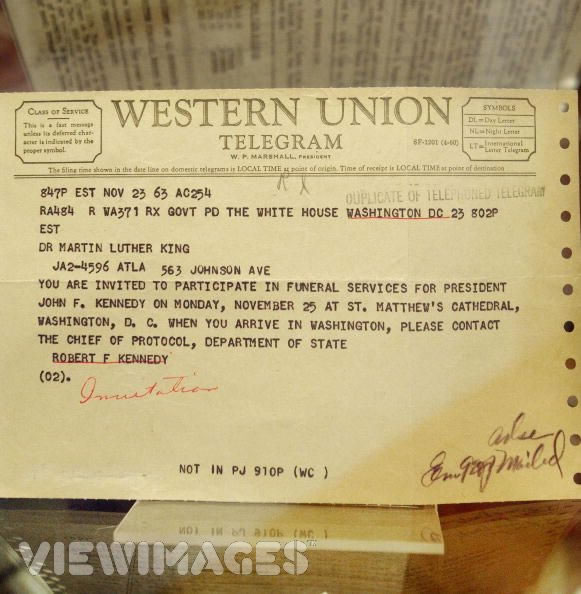 CLASS OF SERVICE
This is a fast message
unless its deferred char-
acter is indicated by the
proper symbol.
WESTERN UNION
TELEGRAM
W. P. MARSHALL, PRESIDENT
SF-1201 (4-60)
SYMBOLS
DL=Day Letter
NL=Night Letter
LT=International Letter Telegram
The filing time shown in the date line on domestic telegrams is LOCAL TIME at point of origin. Time of receipt is LOCAL TIME at point of destination
DUPLICATE OF TELEPHONED TELEGRAM
847P EST NOV 23 63 AC254
RA484 R WA371 RX GOVT PD THE WHITE HOUSE WASHINGTON DC 23 802P
EST
DR MARTIN LUTHER KING
JA2-4596 ATLA 563 JOHNSON AVE
YOU ARE INVITED TO PARTICIPATE IN FUNERAL SERVICES FOR PRESIDENT
JOHN F. KENNEDY ON MONDAY, NOVEMBER 25 AT ST. MATTHEW'S CATHEDRAL,
WASHINGTON, D. C. WHEN YOU ARRIVE IN WASHINGTON, PLEASE CONTACT
THE CHIEF OF PROTOCOL, DEPARTMENT OF STATE
ROBERT F KENNEDY
(02).
Invitation
NOT IN PJ 910P (WC )
NOT IN PJ 910P (WC )
VIEWIMAGES